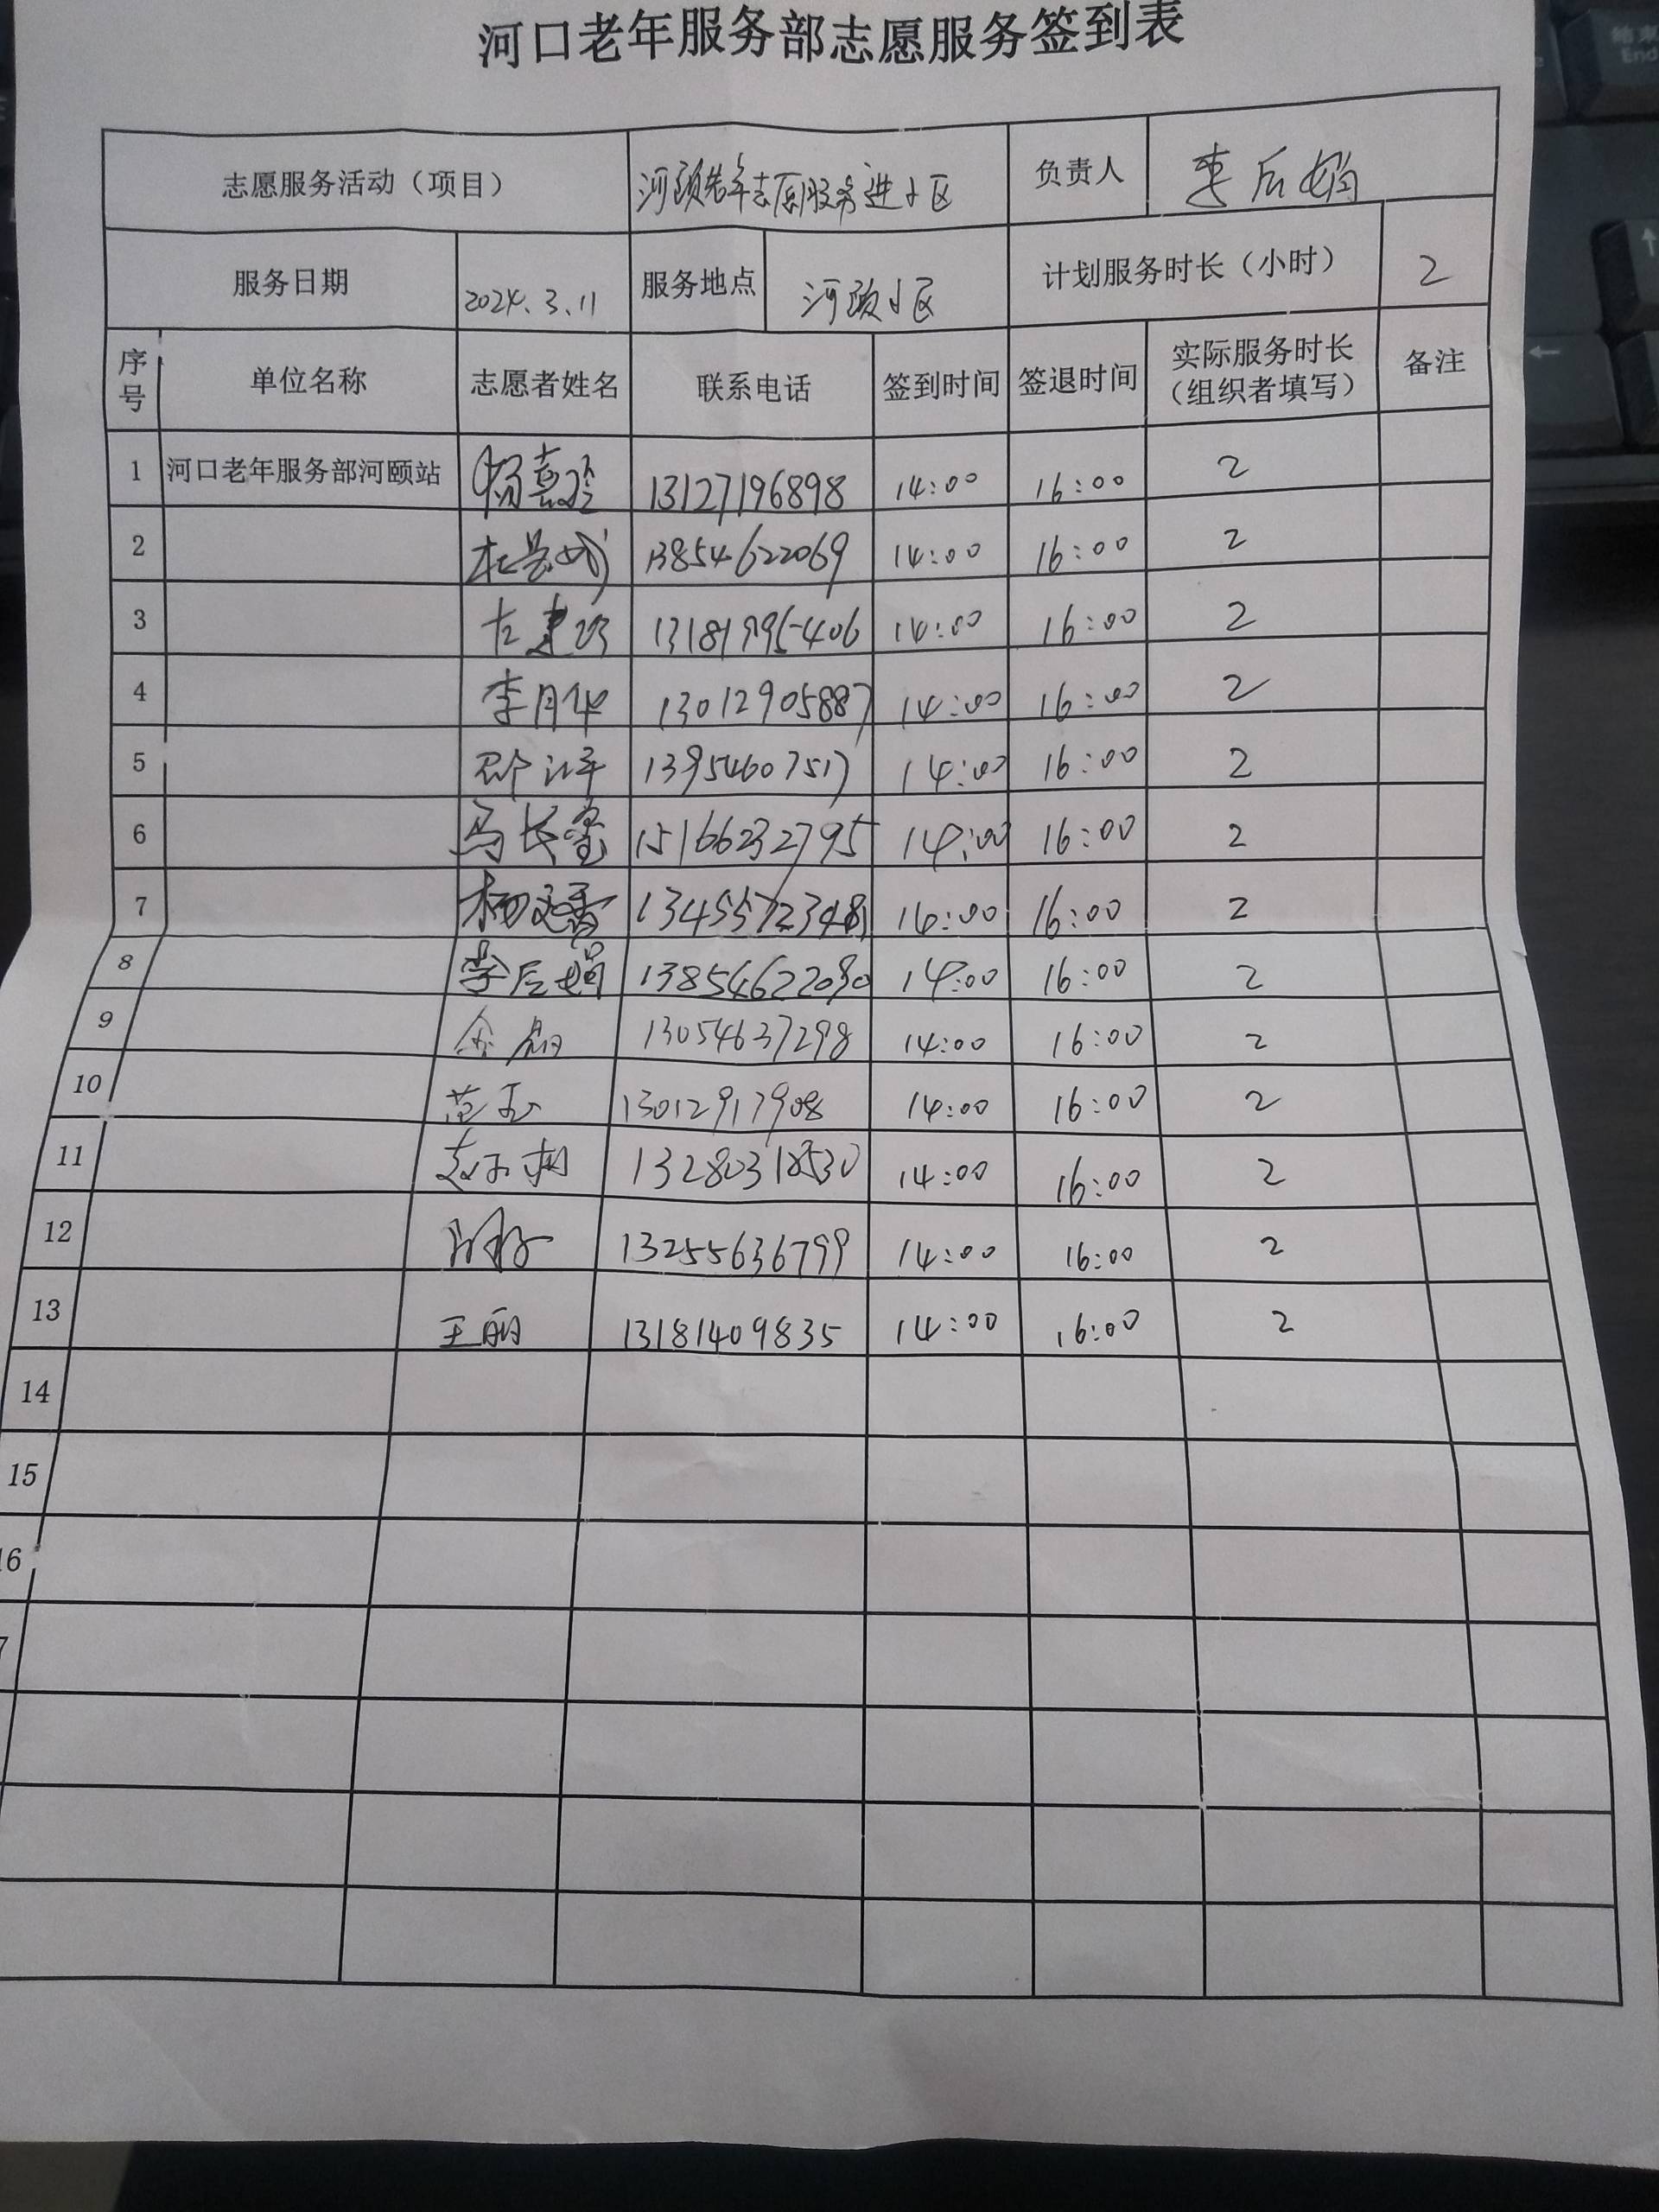 河口老年服务部志愿服务签到表
志愿服务活动（项目） 河颐老年志愿服务进小区 负责人 李后娟
服务日期 2024.3.11 服务地点 河颐小区 计划服务时长（小时） 2
序号 单位名称 志愿者姓名 联系电话 签到时间 签退时间 实际服务时长（组织者填写） 备注
1 河口老年服务部河颐站 杨嘉玲 13127196898 14:00 16:00 2
2 13854622069 14:00 16:00 2
3 13181995406 14:00 16:00 2
4 李月华 13012905887 14:00 16:00 2
5 13954607517 14:00 16:00 2
6 15166232795 14:00 16:00 2
7 16:00 2
8 李后娟 14:00 16:00 2
9 13054637298 14:00 16:00 2
10 范玉 13012917908 14:00 16:00 2
11 14:00 16:00 2
12 13255636799 14:00 16:00 2
13 王丽 13181409835 14:00 16:00 2
14
15
16
7